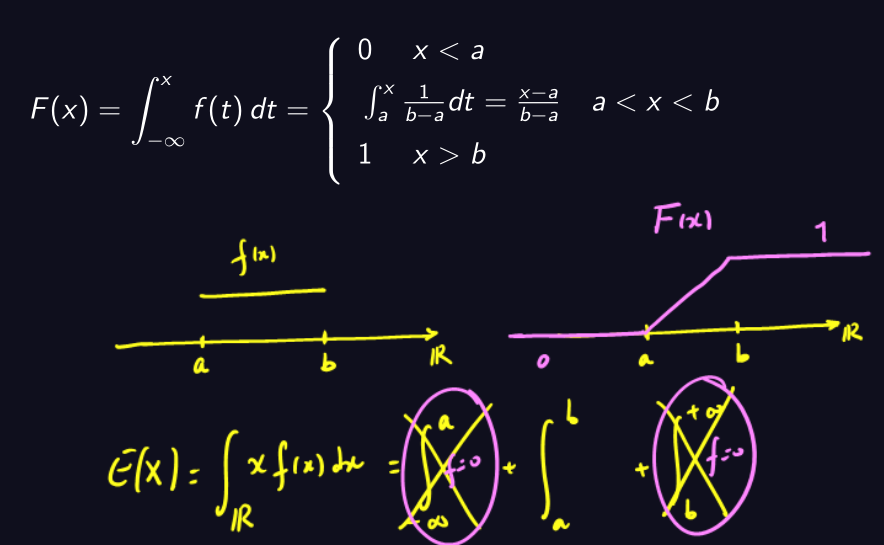 F(x) = ∫_{−∞}^{x} f(t) dt = { 0 x < a
∫_{a}^{x} 1/(b−a) dt = (x−a)/(b−a) a < x < b
1 x > b
f(x)
a b ℝ
F(x)
1
0 a b ℝ
E(X) = ∫_ℝ x f(x) dx = ∫_{−∞}^{a} f=0 + ∫_{a}^{b} + ∫_{b}^{+∞} f=0